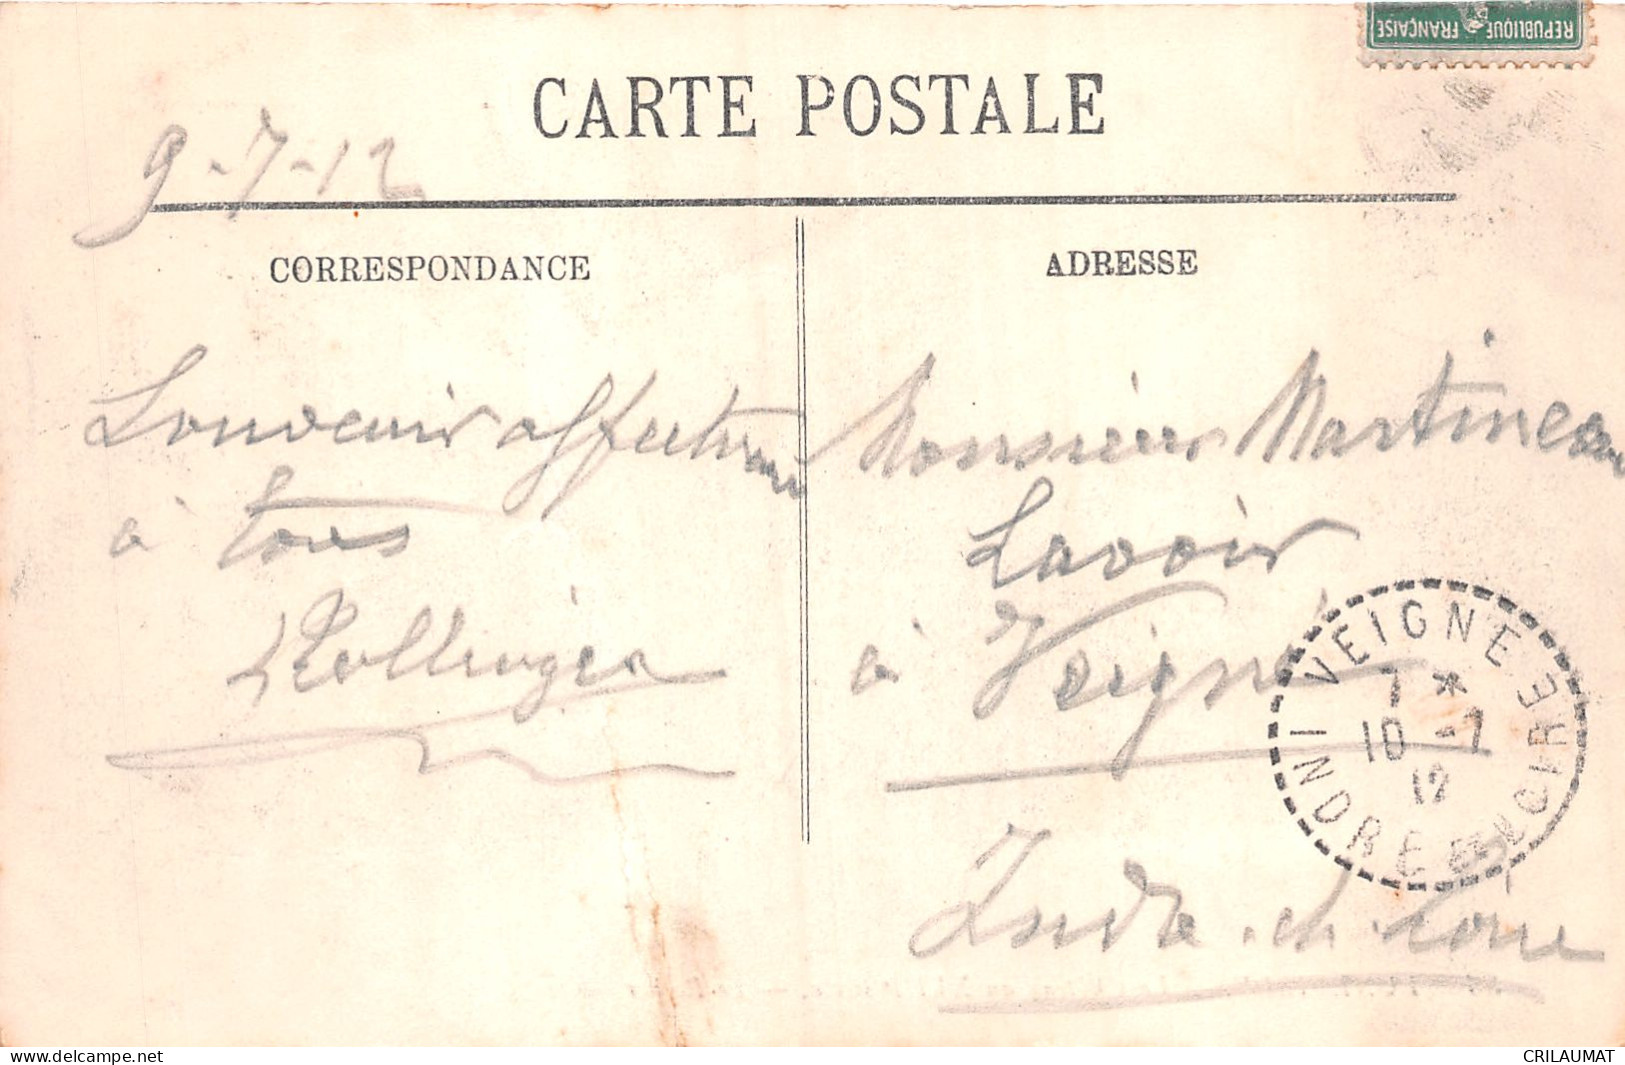 REPUBLIQUE FRANÇAISE
CARTE POSTALE
9-7-12
CORRESPONDANCE
Souvenir affectueux
à tous
Rollinger
ADRESSE
Monsieur Martineau
Lavoir
à Veigné
Indre-et-Loire
VEIGNE
7 *
10 -7
12
INDRE ET LOIRE
CRILAUMAT